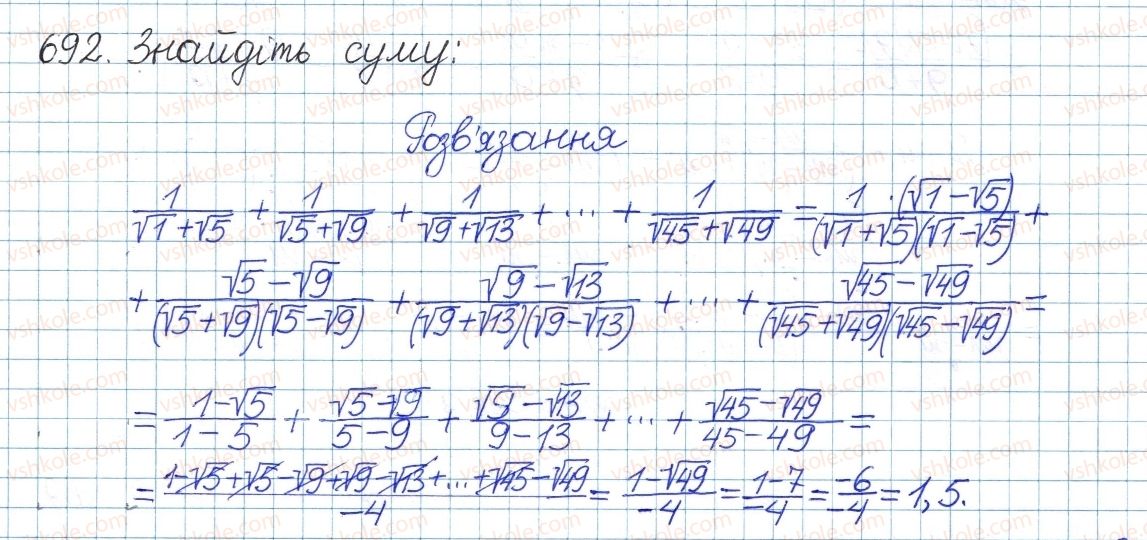 692. Знайдіть суму:
Розв'язання
1/(√1+√5) + 1/(√5+√9) + 1/(√9+√13) + ... + 1/(√45+√49) = 1·(√1-√5)/((√1+√5)(√1-√5)) +
+ (√5-√9)/((√5+√9)(√5-√9)) + (√9-√13)/((√9+√13)(√9-√13)) + ... + (√45-√49)/((√45+√49)(√45-√49)) =
= (1-√5)/(1-5) + (√5-√9)/(5-9) + (√9-√13)/(9-13) + ... + (√45-√49)/(45-49) =
= (1-√5+√5-√9+√9-√13+...+√45-√49)/(-4) = (1-√49)/(-4) = (1-7)/(-4) = (-6)/(-4) = 1,5.
vshkole.com